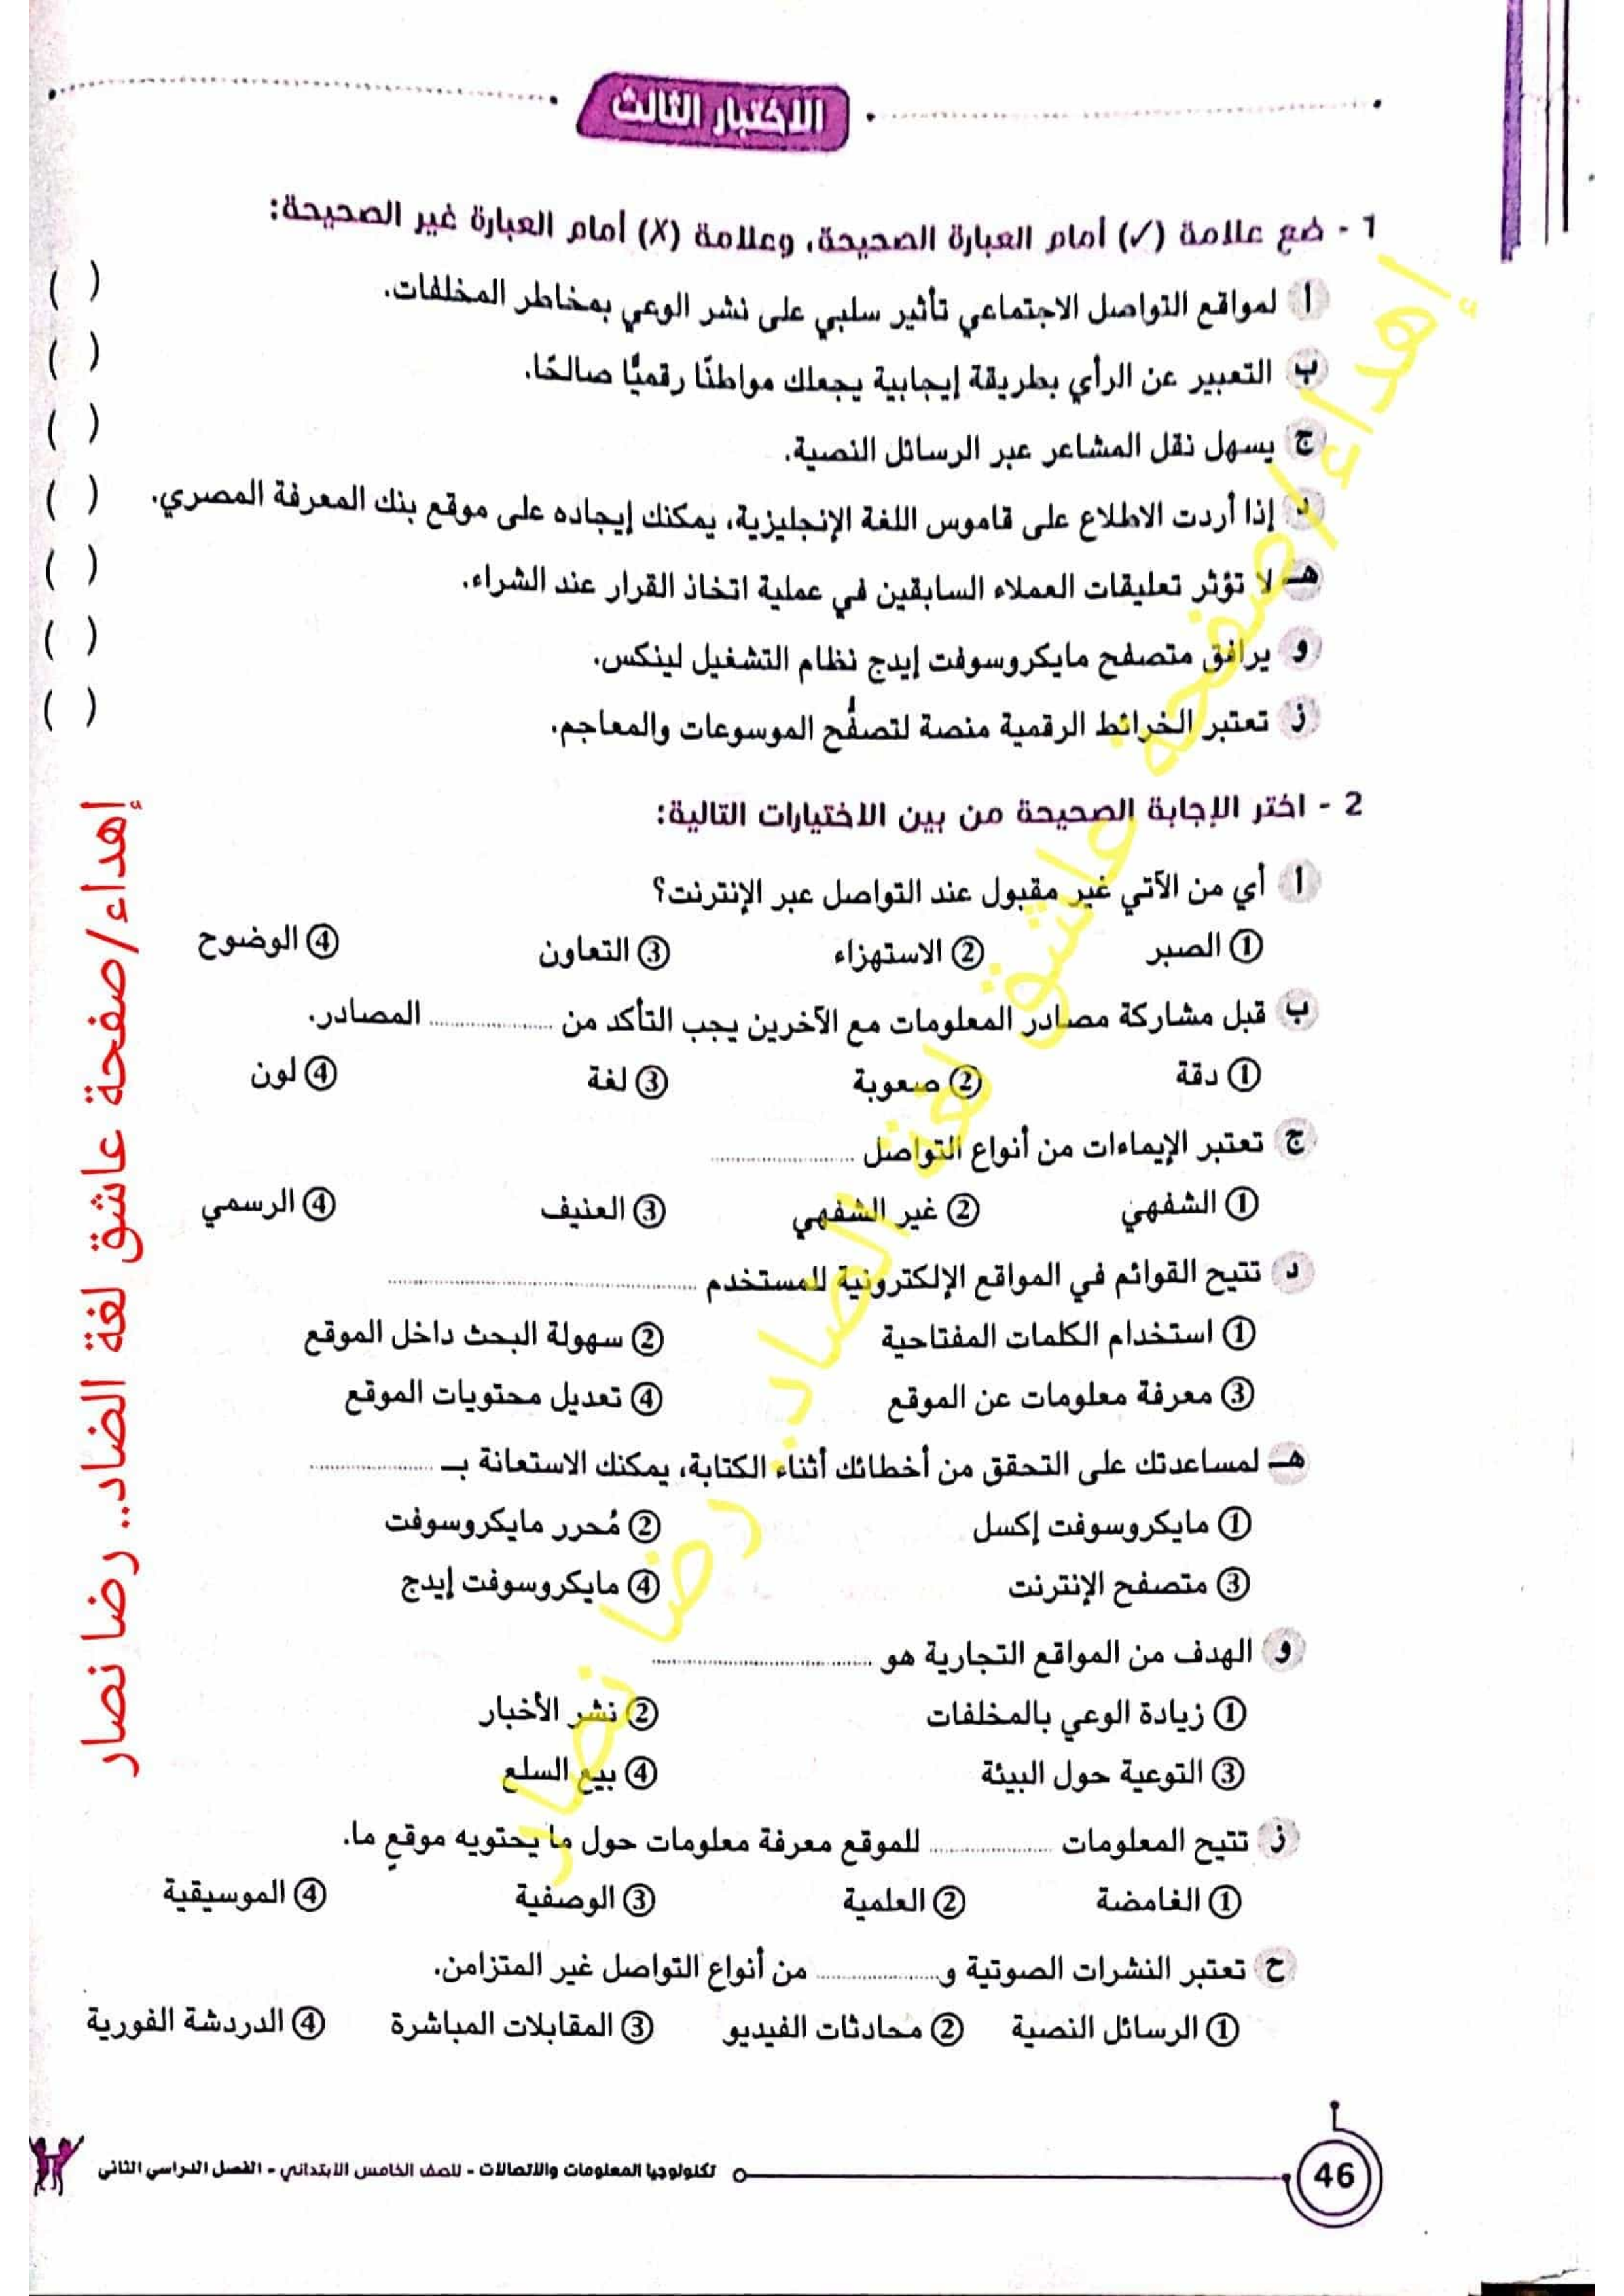 الاختبار الثالث
1 - ضع علامة (✓) أمام العبارة الصحيحة، وعلامة (X) أمام العبارة غير الصحيحة:
أ لمواقع التواصل الاجتماعي تأثير سلبي على نشر الوعي بمخاطر المخلفات. ( )
ب التعبير عن الرأي بطريقة إيجابية يجعلك مواطنًا رقميًّا صالحًا. ( )
ج يسهل نقل المشاعر عبر الرسائل النصية. ( )
د إذا أردت الاطلاع على قاموس اللغة الإنجليزية، يمكنك إيجاده على موقع بنك المعرفة المصري. ( )
هـ لا تؤثر تعليقات العملاء السابقين في عملية اتخاذ القرار عند الشراء. ( )
و يرافق متصفح مايكروسوفت إيدج نظام التشغيل لينكس. ( )
ز تعتبر الخرائط الرقمية منصة لتصفُّح الموسوعات والمعاجم. ( )
2 - اختر الإجابة الصحيحة من بين الاختيارات التالية:
أ أي من الآتي غير مقبول عند التواصل عبر الإنترنت؟
① الصبر ② الاستهزاء ③ التعاون ④ الوضوح
ب قبل مشاركة مصادر المعلومات مع الآخرين يجب التأكد من .................... المصادر.
① دقة ② صعوبة ③ لغة ④ لون
ج تعتبر الإيماءات من أنواع التواصل ....................
① الشفهي ② غير الشفهي ③ العنيف ④ الرسمي
د تتيح القوائم في المواقع الإلكترونية للمستخدم ........................................
① استخدام الكلمات المفتاحية ② سهولة البحث داخل الموقع
③ معرفة معلومات عن الموقع ④ تعديل محتويات الموقع
هـ لمساعدتك على التحقق من أخطائك أثناء الكتابة، يمكنك الاستعانة بـ ....................
① مايكروسوفت إكسل ② مُحرر مايكروسوفت
③ متصفح الإنترنت ④ مايكروسوفت إيدج
و الهدف من المواقع التجارية هو ..............................
① زيادة الوعي بالمخلفات ② نشر الأخبار
③ التوعية حول البيئة ④ بيع السلع
ز تتيح المعلومات .................... للموقع معرفة معلومات حول ما يحتويه موقعٍ ما.
① الغامضة ② العلمية ③ الوصفية ④ الموسيقية
ح تعتبر النشرات الصوتية و.................... من أنواع التواصل غير المتزامن.
① الرسائل النصية ② محادثات الفيديو ③ المقابلات المباشرة ④ الدردشة الفورية
46
تكنولوجيا المعلومات والاتصالات - للصف الخامس الابتدائي - الفصل الدراسي الثاني
إهداء/صفحة عاشق لغة الضاد.. رضا نصار
إهداء/صفحة عاشق لغة الضاد.. رضا نصار